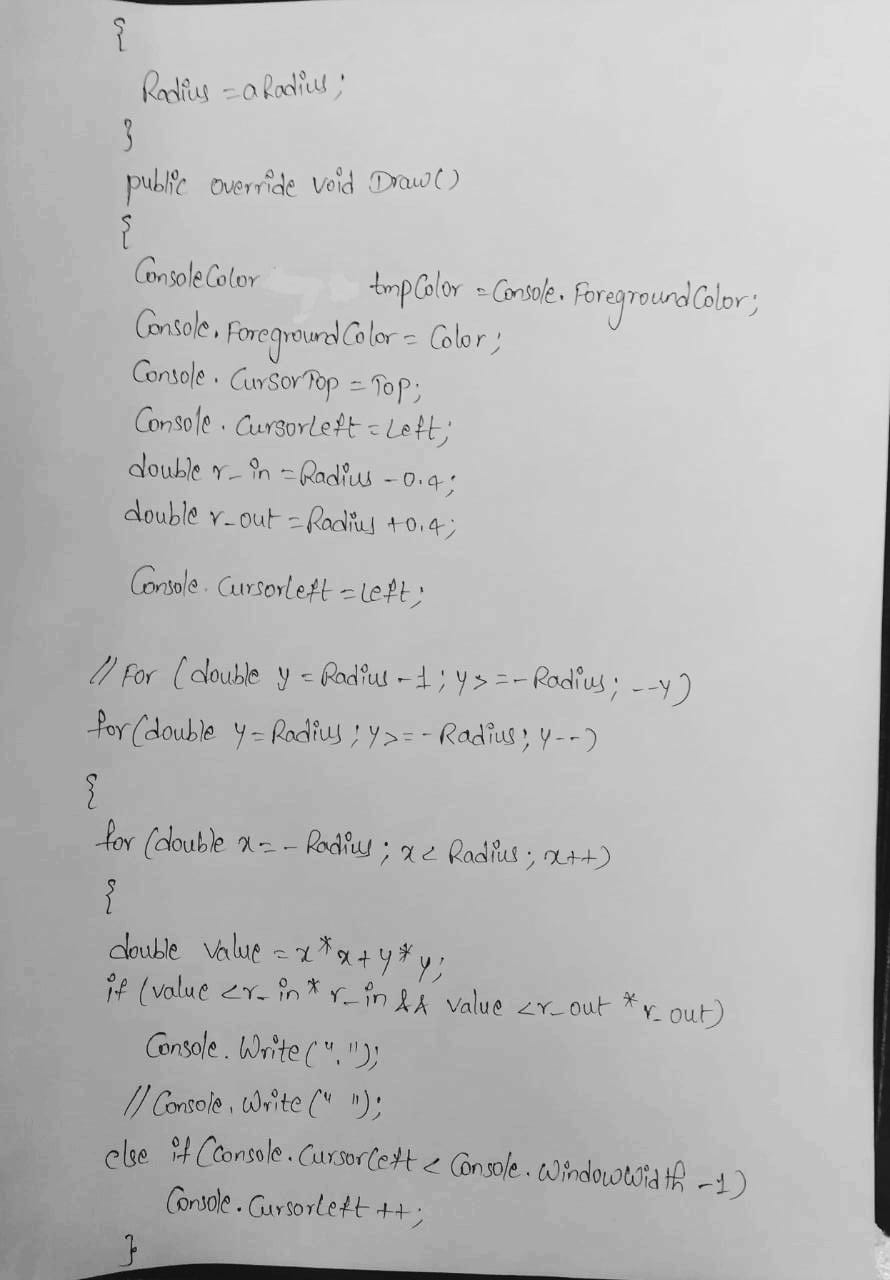 {
Radius = aRadius;
}
public override void Draw()
{
ConsoleColor tmpColor = Console.ForegroundColor;
Console.ForegroundColor = Color;
Console.CursorTop = Top;
Console.CursorLeft = Left;
double r_in = Radius - 0.4;
double r_out = Radius + 0.4;
Console.CursorLeft = Left;
// For (double y = Radius - 1; y >= - Radius; --y)
for (double y = Radius; y >= - Radius; y--)
{
for (double x = - Radius; x < Radius; x++)
{
double value = x * x + y * y;
if (value < r_in * r_in && value < r_out * r_out)
Console.Write(".");
// Console.Write(" ");
else if (Console.CursorLeft < Console.WindowWidth - 1)
Console.CursorLeft ++;
}